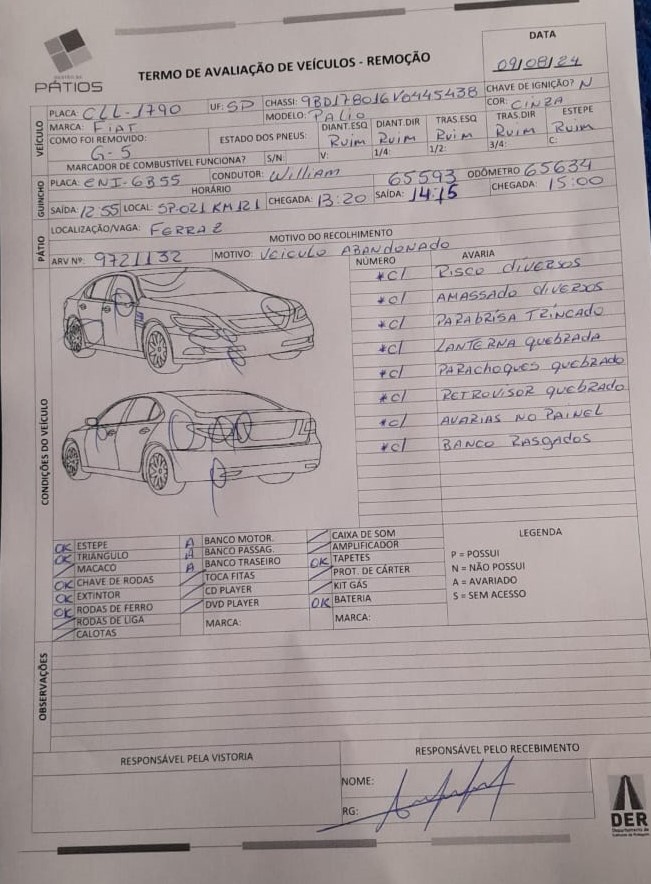 PÁTIOS
TERMO DE AVALIAÇÃO DE VEÍCULOS - REMOÇÃO
DATA
09/08/24
VEÍCULO
PLACA: CLL-1790 UF: SP CHASSI: 9BD178016V0445438 CHAVE DE IGNIÇÃO? N
MARCA: FIAT MODELO: PALIO COR: CINZA
COMO FOI REMOVIDO: G-5 ESTADO DOS PNEUS: DIANT.ESQ Ruim DIANT.DIR Ruim TRAS.ESQ Ruim TRAS.DIR Ruim ESTEPE Ruim
MARCADOR DE COMBUSTÍVEL FUNCIONA? S/N: V: 1/4: 1/2: 3/4: C:
GUINCHO
PLACA: ENJ-6B55 CONDUTOR: William 65593 ODÔMETRO 65634
HORÁRIO
SAÍDA: 12:55 LOCAL: SP-021 KM 121 CHEGADA: 13:20 SAÍDA: 14:15 CHEGADA: 15:00
PÁTIO
LOCALIZAÇÃO/VAGA: FERRAZ
MOTIVO DO RECOLHIMENTO
ARV Nº: 9721132 MOTIVO: VEICULO ABANDONADO
CONDIÇÕES DO VEÍCULO
NÚMERO AVARIA
*C/ RISCO DIVERSOS
*C/ AMASSADO DIVERXOS
*C/ PARABRISA TRINCADO
*C/ LANTERNA QUEBRADA
*C/ PARACHOQUES QUEBRADO
*C/ RETROVISOR QUEBRADO
*C/ AVARIAS NO PAINEL
*C/ BANCO RASGADOS
OK ESTEPE
OK TRIÂNGULO
MACACO
OK CHAVE DE RODAS
OK EXTINTOR
OK RODAS DE FERRO
RODAS DE LIGA
CALOTAS
A BANCO MOTOR.
A BANCO PASSAG.
A BANCO TRASEIRO
TOCA FITAS
CD PLAYER
DVD PLAYER
MARCA:
CAIXA DE SOM
AMPLIFICADOR
OK TAPETES
PROT. DE CÁRTER
KIT GÁS
OK BATERIA
MARCA:
LEGENDA
P = POSSUI
N = NÃO POSSUI
A = AVARIADO
S = SEM ACESSO
OBSERVAÇÕES
RESPONSÁVEL PELA VISTORIA
RESPONSÁVEL PELO RECEBIMENTO
NOME:
RG:
DER